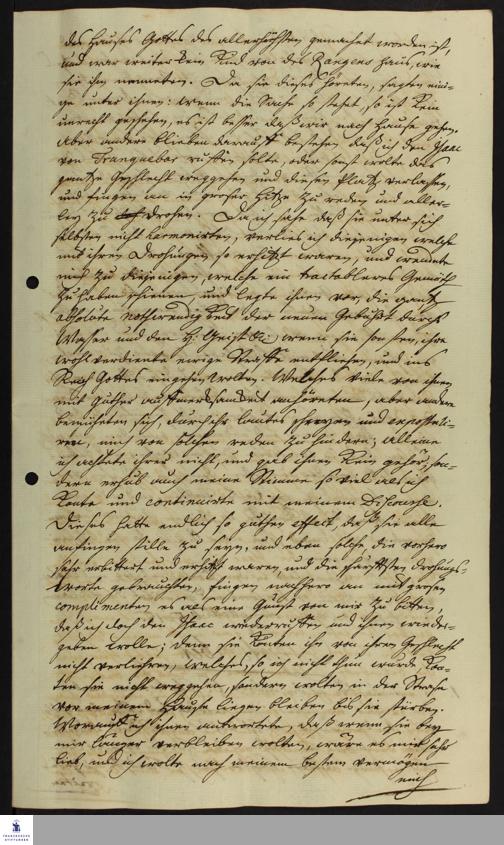 des Hauses Gottes des allerhöchsten gemachet worden ist,
und war weiter kein Kind von des Rangens Haus, wie
sie ihn nenneten. Da sie dieses höreten, sagten eini-
ge unter ihnen: wenn die Sache so stehet, so ist kein
unrecht geschehen, es ist besser daß wir nach Hause gehen.
Aber andere blieben darauff bestehen daß ich den Isaac
von Tranquebar ruffen solte, oder sonst wolte das
gantze Geschlecht weggehen und diesen Platz verlassen,
und fingen an in groser Hitze zu reden und aller-
ley zu drohen. Da ich sahe daß sie unter sich
selbsten nicht harmonirten, verlies ich diejenigen welche
mit ihren Drohungen so erhitzt waren, und wendete
mich zu diejenigen, welche ein tractableres Gemüth
zu haben schienen, und legte ihnen vor, die gantz
absolute nothwendigkeit der neuen Gebuhrt durch
Waßer und den H. Geist wenn sie sonsten, ihre
wohlverdiente ewige Straffe entfliehen, und ins
Reich Gottes eingehen wolten. Welches viele von ihnen
mit guther auffmercksamkeit anhöreten, aber andere
bemüheten sich, durch ihr lautes schreyen und
mich von solchen reden zu hindern; Alleine
ich achtete ihrer nicht, und gab ihnen kein gehör, son-
dern erhub auch meine Stimme so viel als ich
konte und continuirte mit meinem Discourse.
Dieses hatte endlich so guthen effect, daß sie alle
anfingen stille zu seyn, und eben solche die vorhero
sehr erbittert und erhitzt waren, und die schärffsten drohungs-
worte gebrauchten, fingen nachhero an mit grosen
complimenten es als eine Gunst von mir zu bitten,
daß ich doch den Isaac wiederruffen und ihnen wieder-
geben wolle; denn sie könten ihn von ihren Geschlecht
nicht verliehren, welches, so ich nicht thun würde kön-
ten sie nicht weggehen, sondern wolten in der Strase
vor meinem Hause liegen bleiben bis sie stürben.
Worauff ich ihnen antwortete, daß wenn sie bey
mir länger verbleiben wolten, wäre es mir sehr
lieb, und ich wolte nach meinem bestem vermögen
mich
FRANCKESCHE
STIFTUNGEN